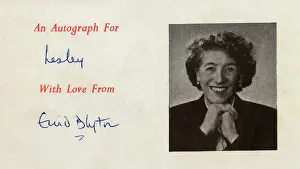 An Autograph For
Lesley
With Love From
Enid Blyton